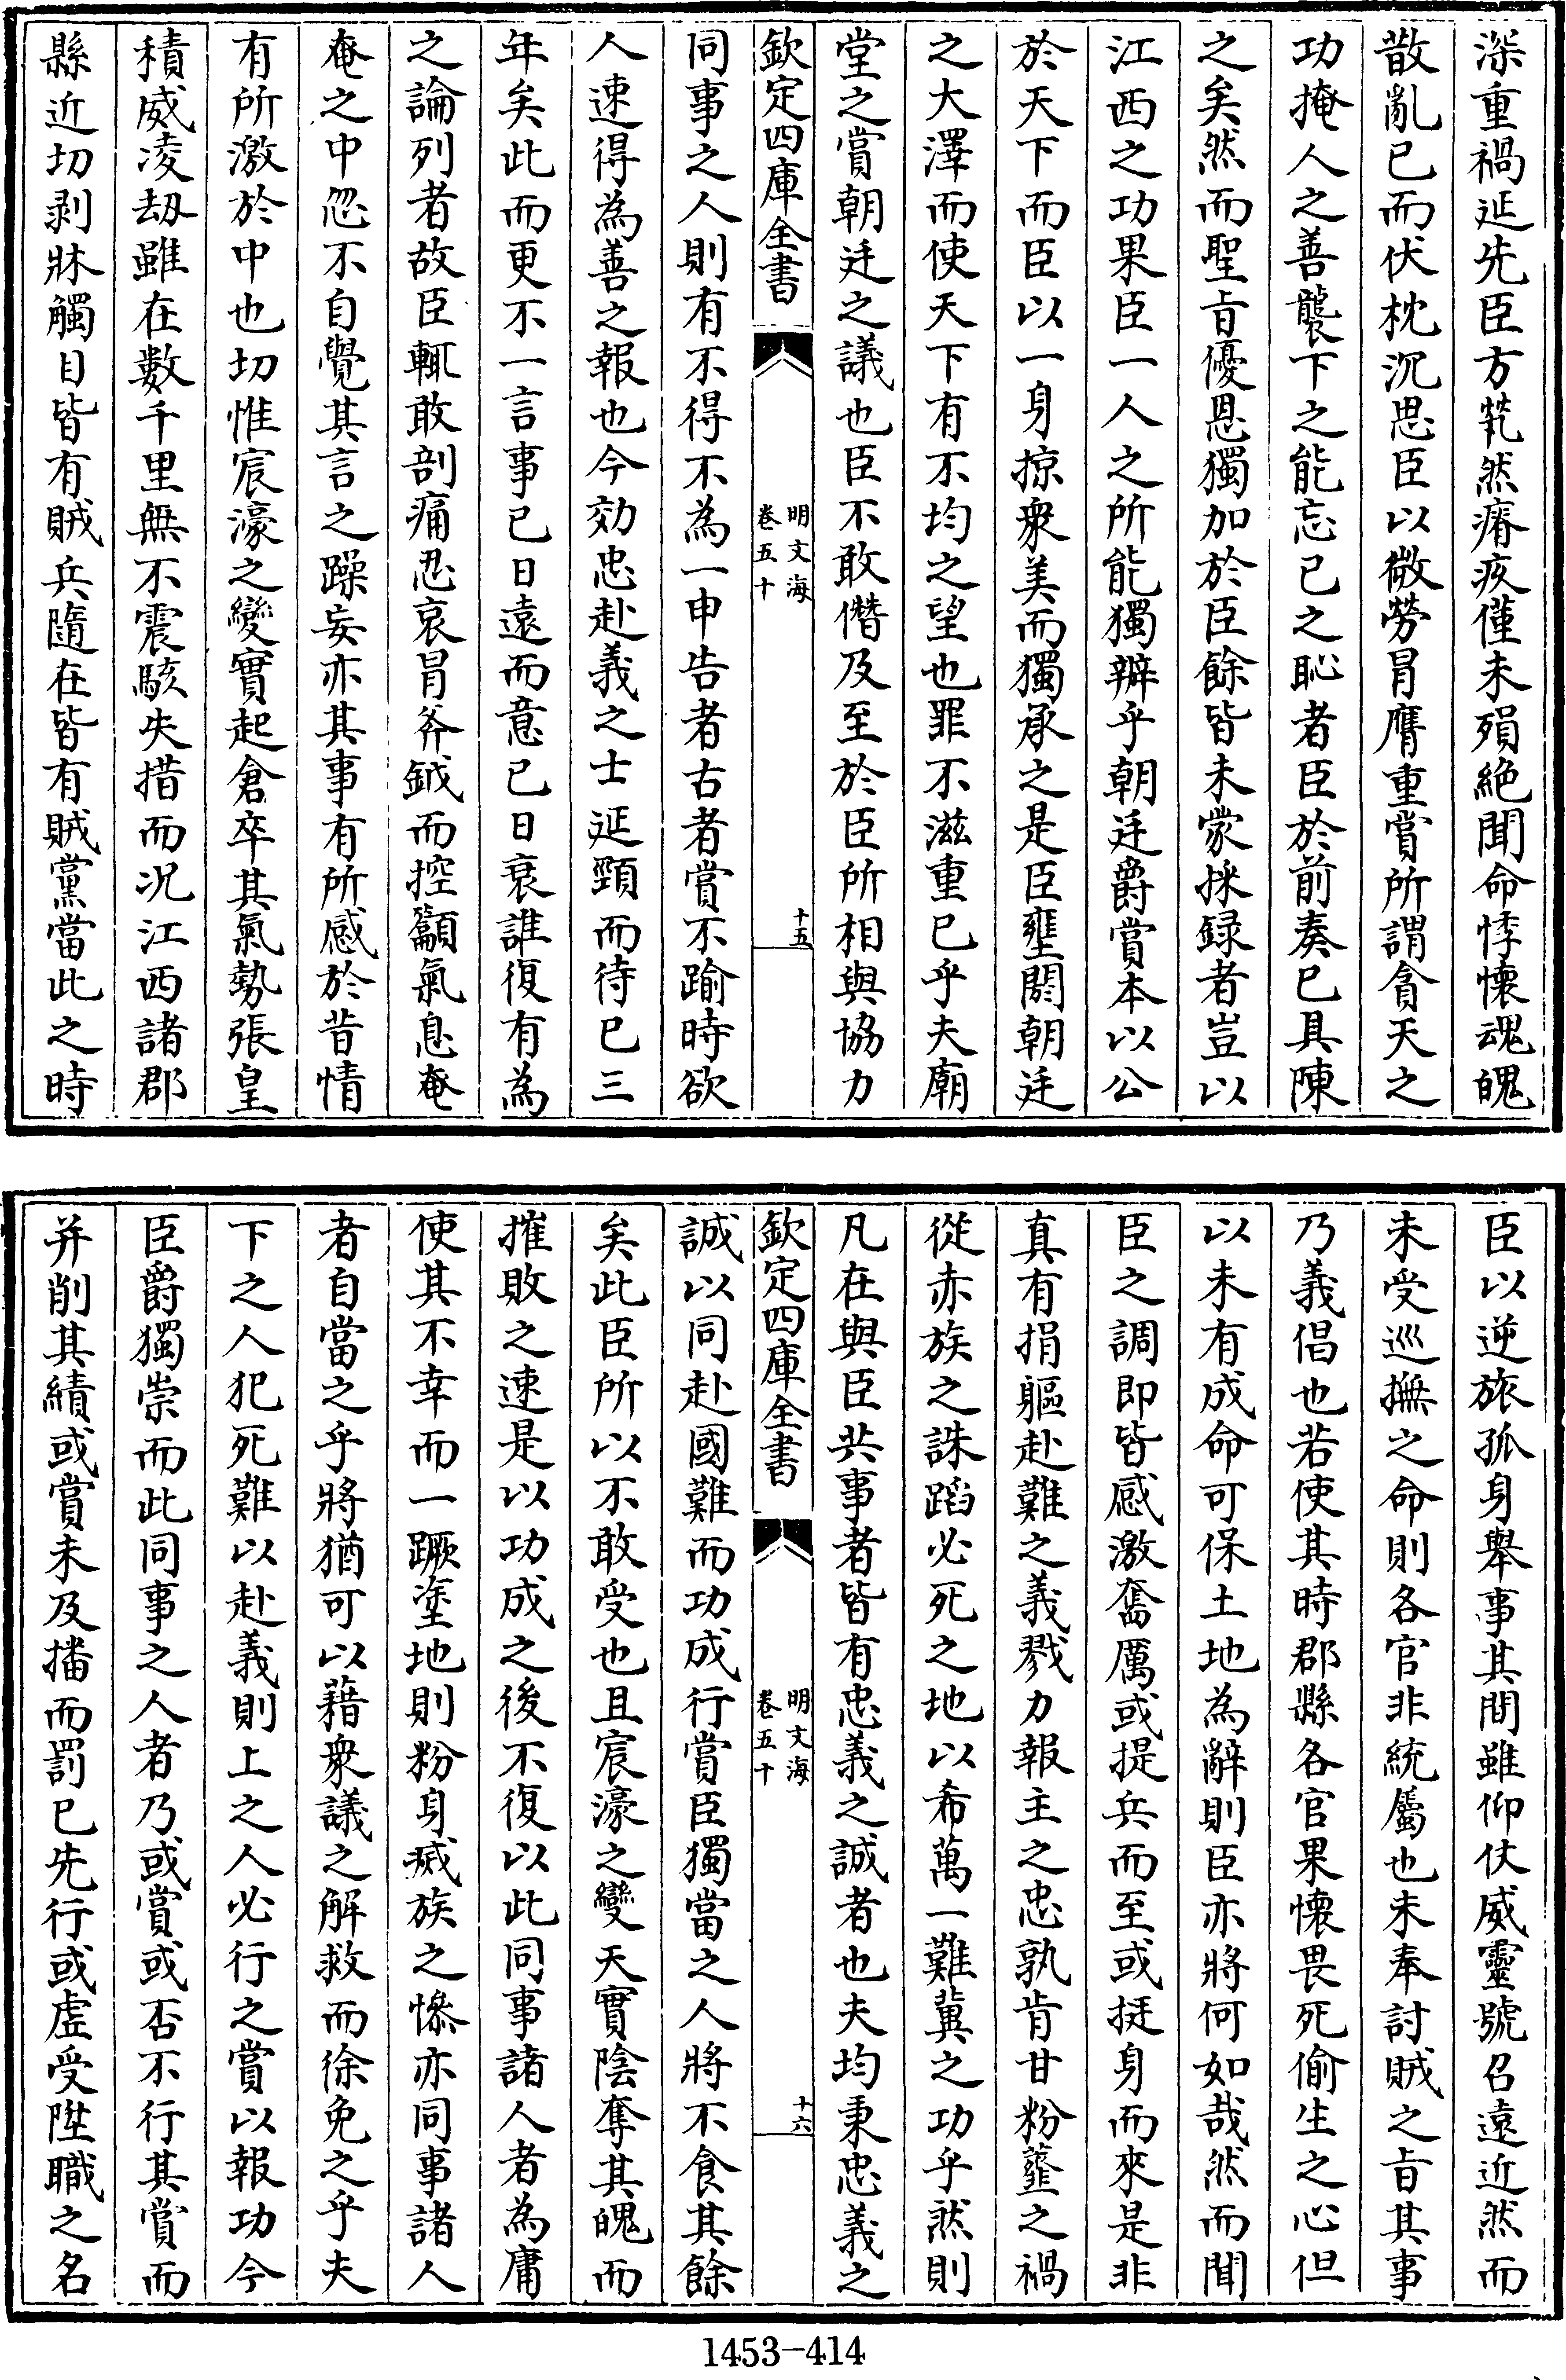 深重禍延先臣方煢然瘠疚僅未殞絶聞命悸懷魂魄
散亂已而伏枕沉思臣以微勞冒膺重賞所謂貪天之
功掩人之善襲下之能忘已之恥者臣於前奏已具陳
之矣然而聖旨優恩獨加於臣餘皆未蒙採録者豈以
江西之功果臣一人之所能獨辦乎朝廷爵賞本以公
於天下而臣以一身掠衆美而獨承之是臣壅閼朝廷
之大澤而使天下有不均之望也罪不滋重已乎夫廟
堂之賞朝廷之議也臣不敢僭及至於臣所相與協力
欽定四庫全書
明文海
卷五十
十五
同事之人則有不得不為一申告者古者賞不踰時欲
人速得為善之報也今効忠赴義之士延頸而待已三
年矣此而更不一言事已日遠而意已日衰誰復有為
之論列者故臣輒敢剖痛忍哀冒斧鉞而控籲氣息奄
奄之中忽不自覺其言之躁妄亦其事有所感於昔情
有所激於中也切惟宸濠之變實起倉卒其氣勢張皇
積威凌刼雖在數千里無不震駭失措而况江西諸郡
縣近切剥牀觸目皆有賊兵隨在皆有賊黨當此之時
臣以逆旅孤身舉事其間雖仰仗威靈號召遠近然而
未受巡撫之命則各官非統屬也未奉討賊之旨其事
乃義倡也若使其時郡縣各官果懷畏死偷生之心但
以未有成命可保土地為辭則臣亦將何如哉然而聞
臣之調即皆感激奮厲或提兵而至或挺身而來是非
真有捐軀赴難之義戮力報主之忠孰肯甘粉虀之禍
從赤族之誅蹈必死之地以希萬一難冀之功乎然則
凡在與臣共事者皆有忠義之誠者也夫均秉忠義之
欽定四庫全書
明文海
卷五十
十六
誠以同赴國難而功成行賞臣獨當之人將不食其餘
矣此臣所以不敢受也且宸濠之變天實陰奪其魄而
摧敗之速是以功成之後不復以此同事諸人者為庸
使其不幸而一蹶塗地則粉身滅族之慘亦同事諸人
者自當之乎將猶可以藉衆議之解救而徐免之乎夫
下之人犯死難以赴義則上之人必行之賞以報功今
臣爵獨崇而此同事之人者乃或賞或否不行其賞而
并削其績或賞未及播而罰已先行或虛受陞職之名
1453-414